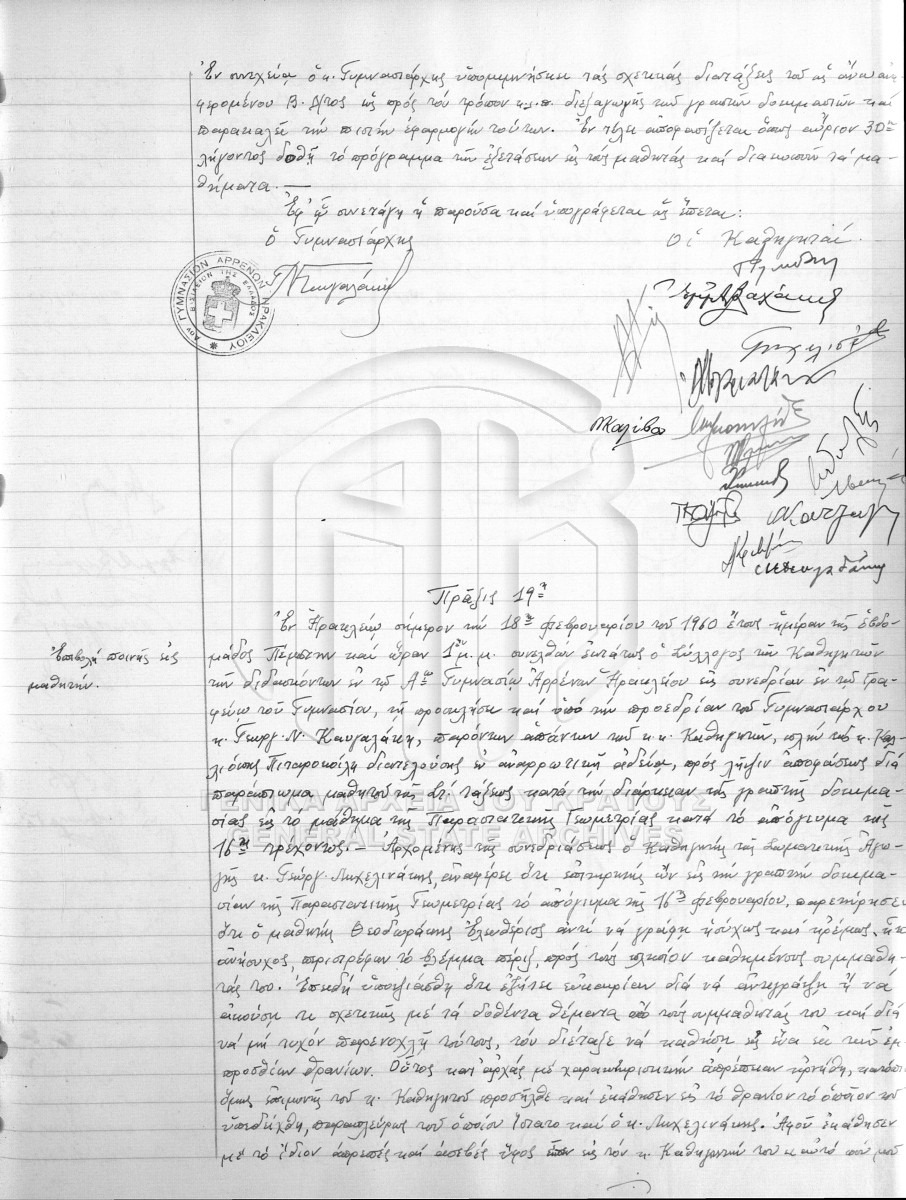 Ἐν συνεχείᾳ ὁ κ. Γυμνασιάρχης ὑπομιμνήσκει τάς σχετικάς διατάξεις τοῦ ὡς ἄνω ἀνα-
φερομένου Β. Δ/τος ὡς πρός τόν τρόπον κ.λ.π. διεξαγωγῆς τῶν γραπτῶν δοκιμασιῶν καί
παρακαλεῖ τήν πιστήν ἐφαρμογήν τούτων. Ἐν τέλει ἀποφασίζεται ὅπως αὔριον 30ην
λήγοντος δοθῇ τό πρόγραμμα τῶν ἐξετάσεων εἰς τούς μαθητάς καί διακοποῦν τά μα-
θήματα. —
Ἐφ' ᾧ συνετάγη ἡ παροῦσα καί ὑπογράφεται ὡς ἕπεται:
ὁ Γυμνασιάρχης
Οἱ Καθηγηταί
Αον ΓΥΜΝΑΣΙΟΝ ΑΡΡΕΝΩΝ ΗΡΑΚΛΕΙΟΥ
ΒΑΣΙΛΕΙΟΝ ΤΗΣ ΕΛΛΑΔΟΣ
Πρᾶξις 19η
Ἐπιβολή ποινῆς εἰς
μαθητήν.
Ἐν Ἡρακλείῳ σήμερον τήν 18ην Φεβρουαρίου τοῦ 1960 ἔτους ἡμέραν τῆς ἑβδο-
μάδος Πέμπτην καί ὥραν 1ην μ.μ. συνελθών ἐκτάκτως ὁ Σύλλογος τῶν Καθηγητῶν
τῶν διδασκόντων ἐν τῷ Αῳ Γυμνασίῳ Ἀρρένων Ἡρακλείου εἰς συνεδρίαν ἐν τῷ Γρα-
φείῳ τοῦ Γυμνασίου, τῇ προσκλήσει καί ὑπό τήν προεδρίαν τοῦ Γυμνασιάρχου
κ. Γεωργ. Ν. Καυγαλάκη, παρόντων ἁπάντων τῶν κ.κ. Καθηγητῶν, πλήν τῆς κ. Καλ-
λιόπης Πιταροκοίλη διατελούσης ἐν ἀναρρωτικῇ ἀδείᾳ, πρός λῆψιν ἀποφάσεως διά
παράπτωμα μαθητοῦ τῆς Στ. τάξεως κατά τήν διάρκειαν τῆς γραπτῆς δοκιμα-
σίας εἰς τό μάθημα τῆς Παραστατικῆς Γεωμετρίας κατά τό ἀπόγευμα τῆς
16ης τρέχοντος. — Ἀρχομένης τῆς συνεδριάσεως ὁ Καθηγητής τῆς Σωματικῆς Ἀγω-
γῆς κ. Γεώργ. Λιχελινάκης, ἀναφέρει ὅτι ἐπιτηρητής ὤν εἰς τήν γραπτήν δοκιμα-
σίαν τῆς Παραστατικῆς Γεωμετρίας τό ἀπόγευμα τῆς 16ης Φεβρουαρίου, παρετήρησεν
ὅτι ὁ μαθητής Θεοδωράκης Ἐλευθέριος ἀντί νά γράφῃ ἡσύχως καί ἠρέμως, ἦτο
ἀνήσυχος, περιστρέφων τό βλέμμα πέριξ, πρός τούς πλησίον καθημένους συμμαθη-
τάς του. Ἐπειδή ὑποψιάσθη ὅτι ἐζήτει εὐκαιρίαν διά νά ἀντιγράψῃ ἤ νά
ἀκούσῃ τι σχετικῶς μέ τά δοθέντα θέματα ἀπό τούς συμμαθητάς του καί διά
νά μή τυχόν παρενοχλῇ τούτους, τόν διέταξε νά καθήσῃ εἰς ἕνα ἐκ τῶν ἐμ-
προσθίων θρανίων. Οὗτος κατ' ἀρχάς μέ χαρακτηριστικήν ἀπρέπειαν ἠρνήθη, κατόπιν
ὅμως ἐπιμονῆς τοῦ κ. Καθηγητοῦ προσῆλθε καί ἐκάθησεν εἰς τό θρανίον τό ὁποῖον τοῦ
ὑπεδείχθη, παραπλεύρως τοῦ ὁποίου ἵστατο καί ὁ κ. Λιχελινάκης. Ἀφοῦ ἐκάθησεν
μέ τό ἴδιον ἀπρεπές καί ἀσεβές ὕφος εἰς τόν κ. Καθηγητήν του «αὐτό πού μοῦ
ΓΕΝΙΚΑ ΑΡΧΕΙΑ ΤΟΥ ΚΡΑΤΟΥΣ
GENERAL STATE ARCHIVES